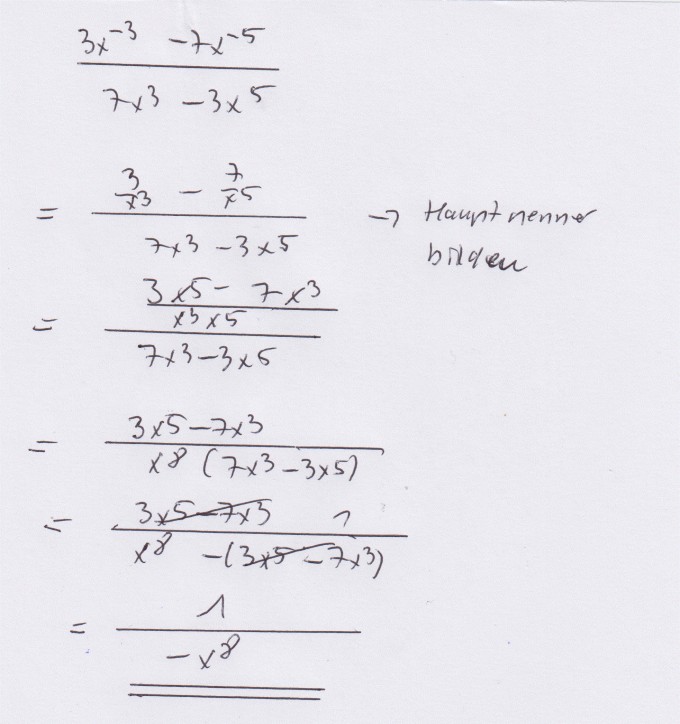 3x⁻³ - 7x⁻⁵
7x³ - 3x⁵
3/x³ - 7/x⁵
= → Hauptnenner
7x³ - 3x⁵ bilden
3x⁵ - 7x³
= x³x⁵
7x³ - 3x⁵
= 3x⁵ - 7x³
x⁸ (7x³ - 3x⁵)
= 3x⁵ - 7x³ 1
x⁸ -(3x⁵ - 7x³)
= 1
-x⁸